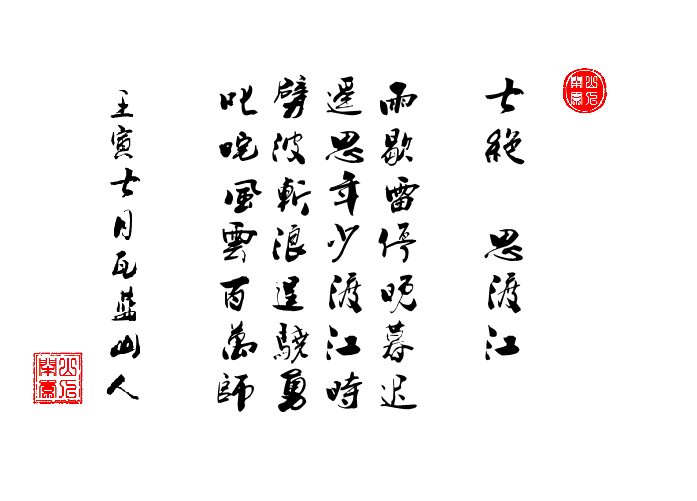 七絕 思渡江
雨歇雷停晚暮迟
遥思年少渡江時
劈波斬浪逞驍勇
叱咤風雲百萬師
壬寅七月瓦藍山人